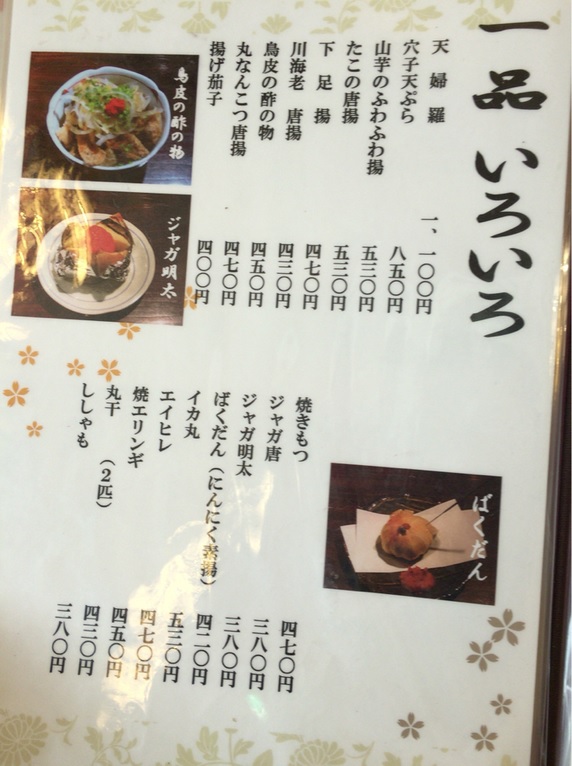 一品 いろいろ
天婦羅 一、一〇〇円
穴子天ぷら 八五〇円
山芋のふわふわ揚 五三〇円
たこの唐揚 五三〇円
下足揚 四七〇円
川海老 唐揚 四三〇円
鳥皮の酢の物 四五〇円
丸なんこつ唐揚 四七〇円
揚げ茄子 四〇〇円
鳥皮の酢の物
ジャガ明太
ばくだん
焼きもつ 四七〇円
ジャガ唐 三八〇円
ジャガ明太 三八〇円
ばくだん(にんにく素揚) 四二〇円
イカ丸 五三〇円
エイヒレ 四七〇円
焼エリンギ 四五〇円
丸干 (2匹) 四三〇円
ししゃも 三八〇円